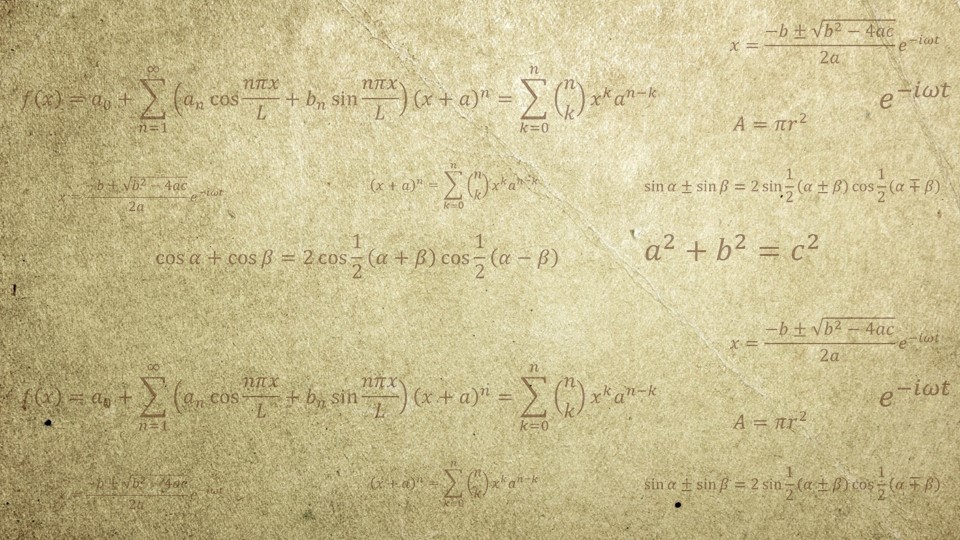 x = \frac{-b ± \sqrt{b² − 4ac}}{2a} e^{−iωt}
f(x) = a₀ + \sum_{n=1}^{∞} (aₙ cos \frac{nπx}{L} + bₙ sin \frac{nπx}{L}) (x + a)ⁿ = \sum_{k=0}^{n} \binom{n}{k} x^k a^{n−k}
e^{−iωt}
A = πr²
x = \frac{-b ± \sqrt{b² − 4ac}}{2a} e^{−iωt}
(x + a)ⁿ = \sum_{k=0}^{n} \binom{n}{k} x^k a^{n−k}
sin α ± sin β = 2 sin \frac{1}{2} (α ± β) cos \frac{1}{2} (α ∓ β)
cos α + cos β = 2 cos \frac{1}{2} (α + β) cos \frac{1}{2} (α − β)
a² + b² = c²
x = \frac{-b ± \sqrt{b² − 4ac}}{2a} e^{−iωt}
f(x) = a₀ + \sum_{n=1}^{∞} (aₙ cos \frac{nπx}{L} + bₙ sin \frac{nπx}{L}) (x + a)ⁿ = \sum_{k=0}^{n} \binom{n}{k} x^k a^{n−k}
e^{−iωt}
A = πr²
x = \frac{-b ± \sqrt{b² − 4ac}}{2a} e^{−iωt}
(x + a)ⁿ = \sum_{k=0}^{n} \binom{n}{k} x^k a^{n−k}
sin α ± sin β = 2 sin \frac{1}{2} (α ± β) cos \frac{1}{2} (α ∓ β)